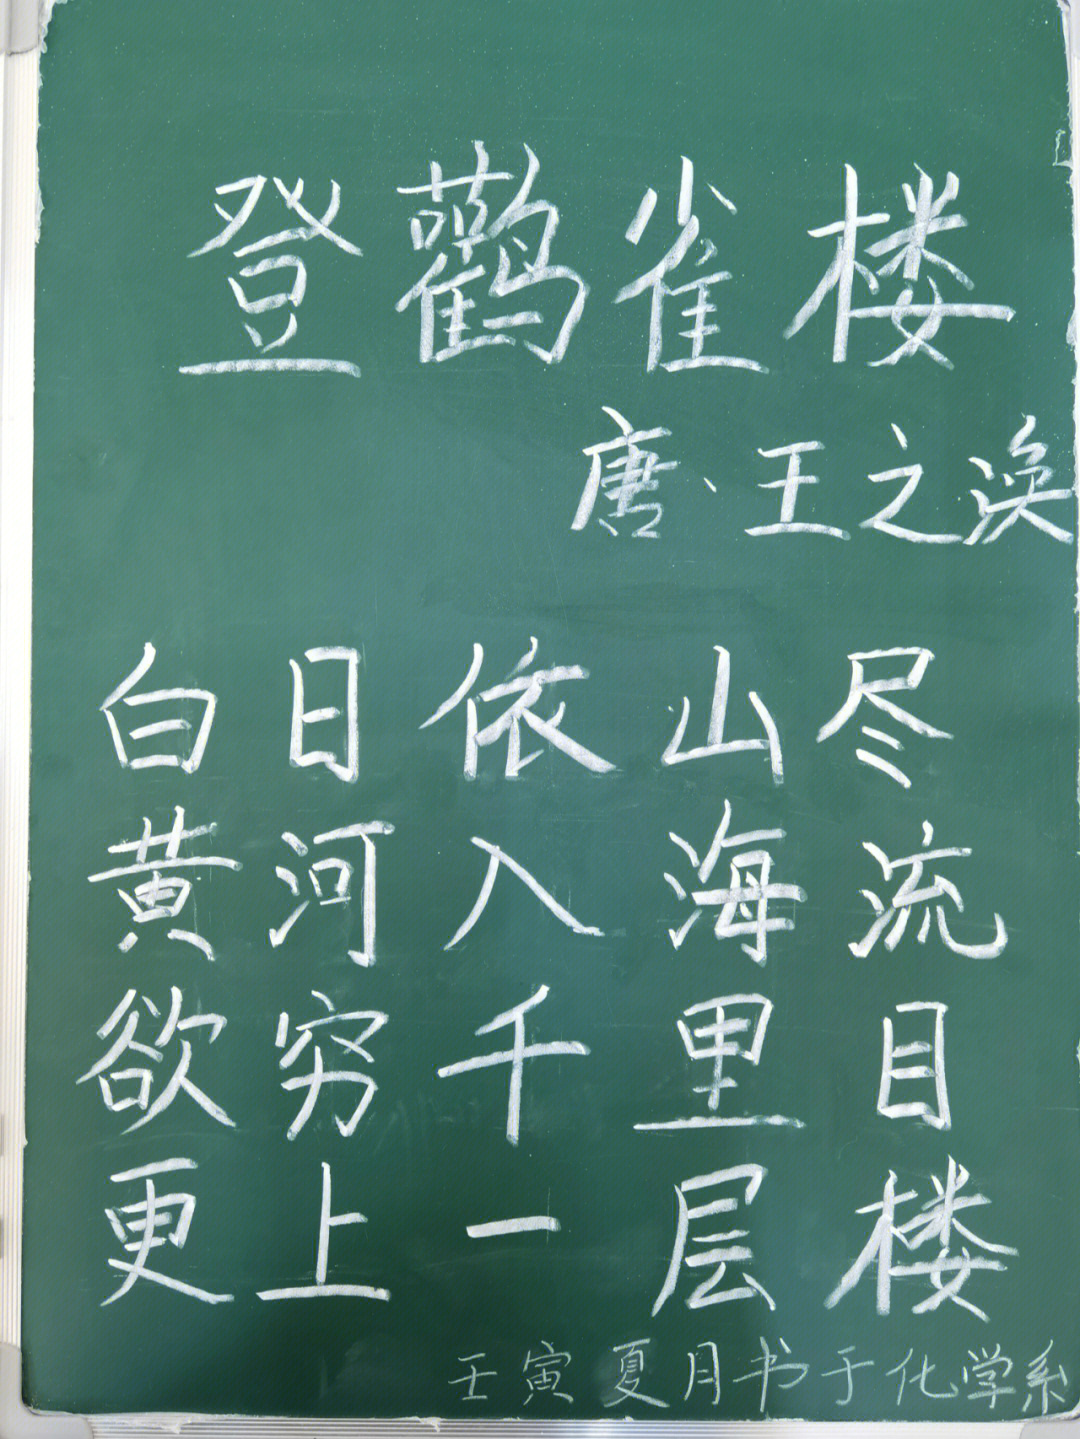 登鹳雀楼
唐、王之涣
白日依山尽
黄河入海流
欲穷千里目
更上一层楼
壬寅夏月书于化学系